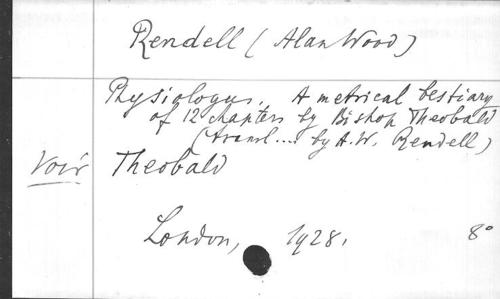 Rendell (Alan Wood)
Physiologus. A metrical bestiary
of 12 chapters by Bishop Theobald
(transl.... by A.W. Rendell)
Voir Theobald
London, 1928. 8°